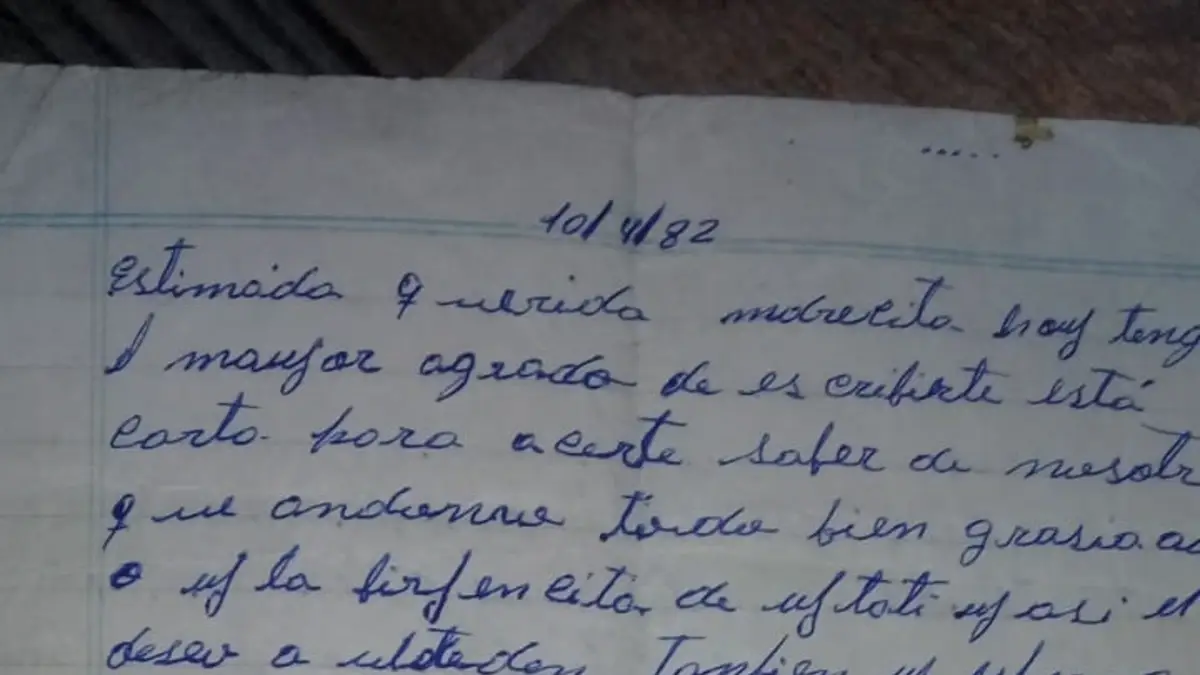 10/4/82
Estimada querida madrecita hoy teng
l mayor agrado de escribirte está
carta para acerte saber de nosotr
que andanmo todo bien grasia a
o y la birjencita de ytati y asi
deseo a Tanbien